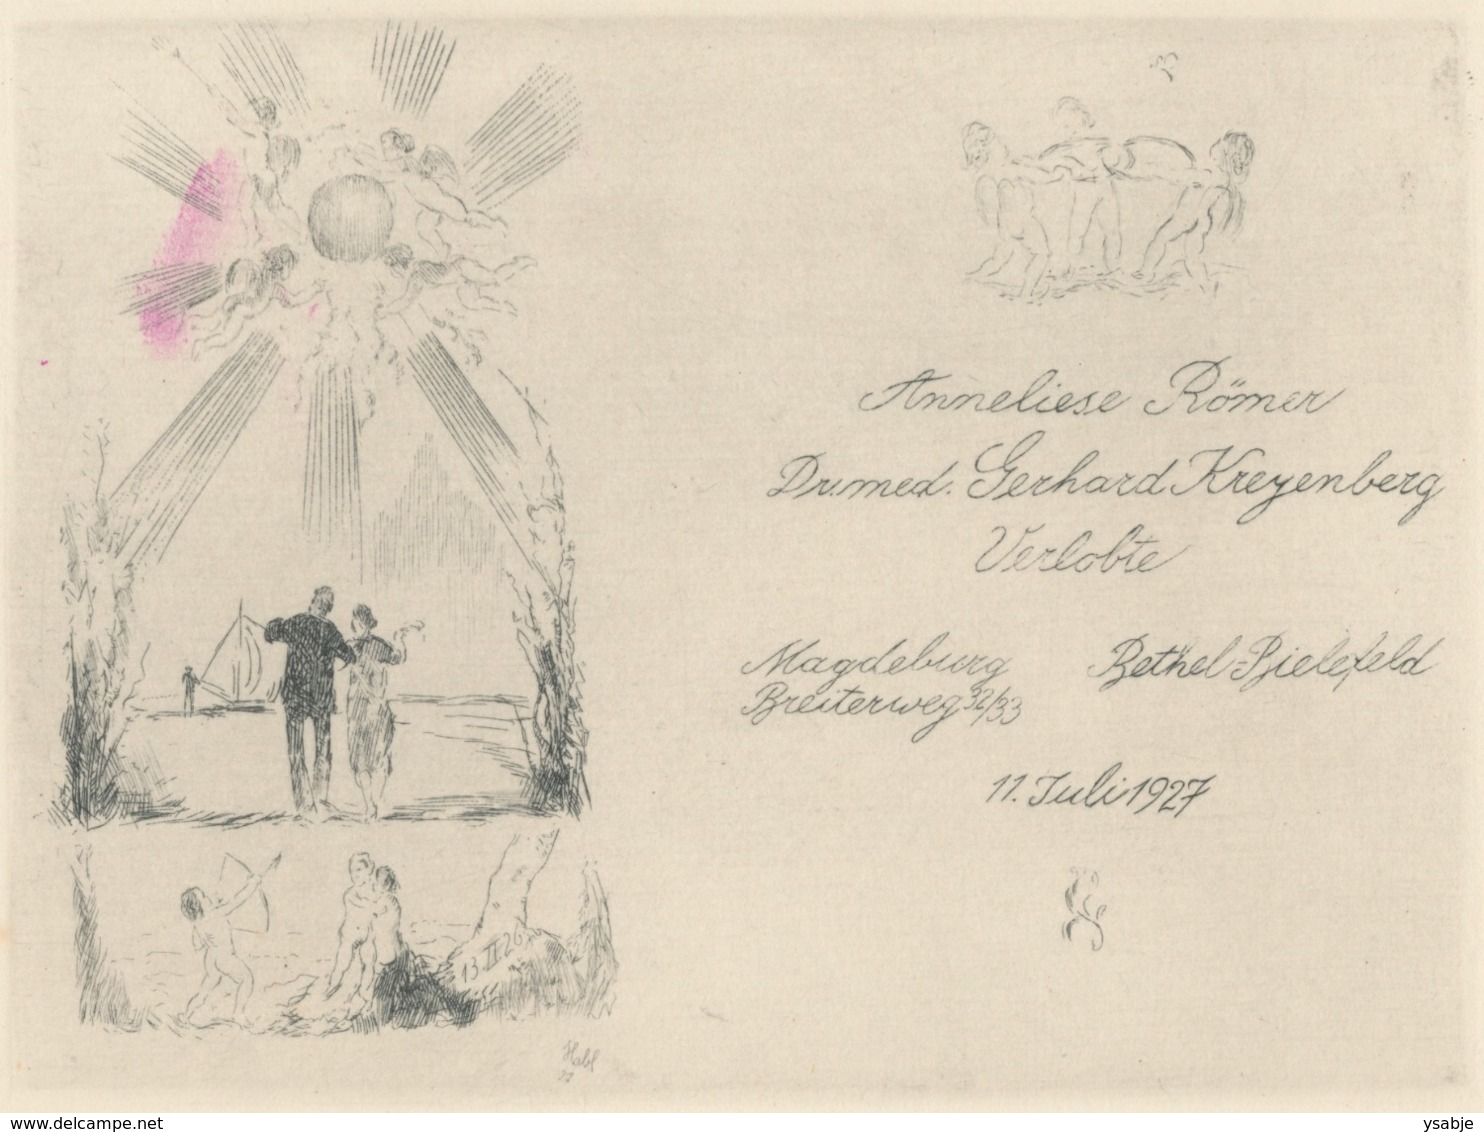 Anneliese Römer
Dr. med. Gerhard Kreyenberg
Verlobte
Magdeburg
Breiterweg 32/33
Bethel-Bielefeld
11. Juli 1927
13 II 26
delcampe.net
ysabje